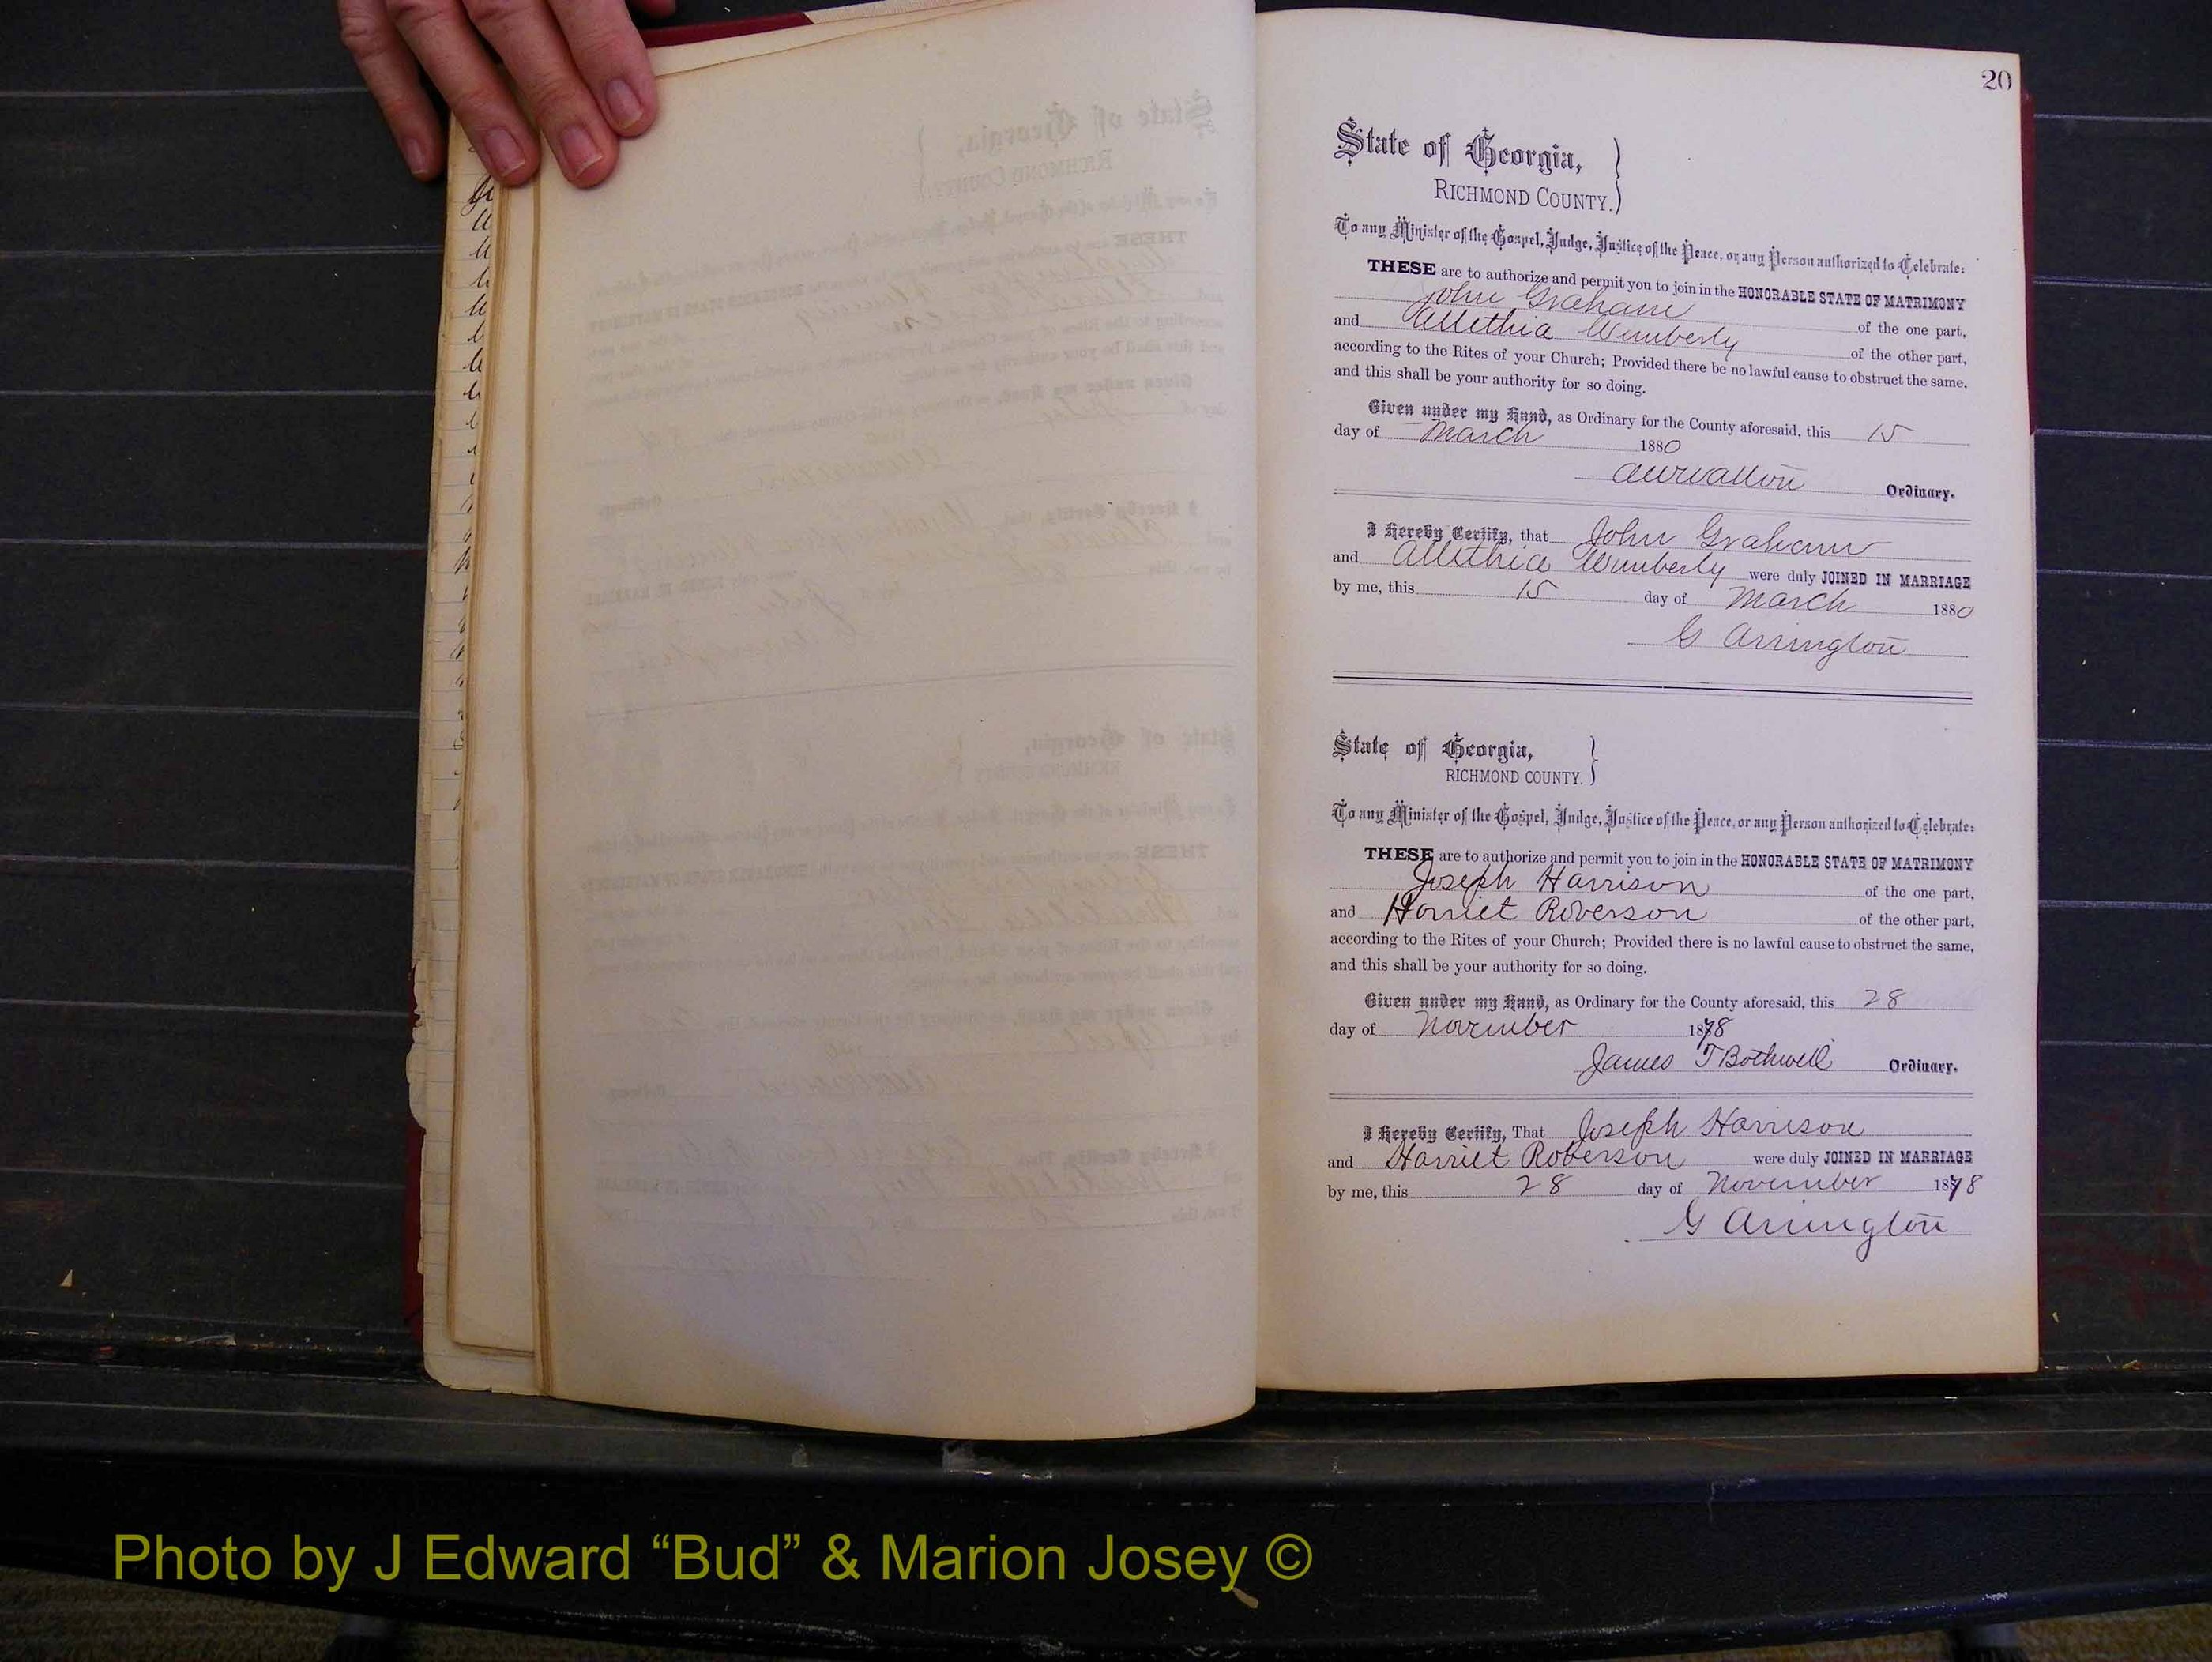 20
State of Georgia,
RICHMOND COUNTY.
To any Minister of the Gospel, Judge, Justice of the Peace, or any Person authorized to Celebrate:
THESE are to authorize and permit you to join in the HONORABLE STATE OF MATRIMONY
John Graham of the one part,
and Allethia Wimberly of the other part,
according to the Rites of your Church; Provided there be no lawful cause to obstruct the same,
and this shall be your authority for so doing.
Given under my Hand, as Ordinary for the County aforesaid, this 15
day of March 1880
Ordinary.
I Hereby Certify, that John Graham
and Allethia Wimberly were duly JOINED IN MARRIAGE
by me, this 15 day of March 1880
G Arrington
State of Georgia,
RICHMOND COUNTY.
To any Minister of the Gospel, Judge, Justice of the Peace, or any Person authorized to Celebrate:
THESE are to authorize and permit you to join in the HONORABLE STATE OF MATRIMONY
Joseph Harrison of the one part,
and Harriet Roberson of the other part,
according to the Rites of your Church; Provided there is no lawful cause to obstruct the same,
and this shall be your authority for so doing.
Given under my Hand, as Ordinary for the County aforesaid, this 28
day of November 1878
James T Bothwell Ordinary.
I Hereby Certify, That Joseph Harrison
and Harriet Roberson were duly JOINED IN MARRIAGE
by me, this 28 day of November 1878
G Arrington
Photo by J Edward “Bud” & Marion Josey ©